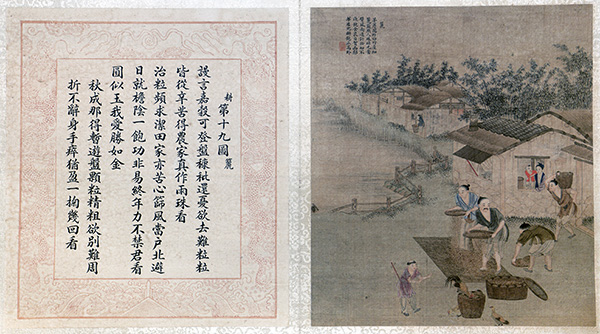 耕 第十九圖 簏
謾言嘉穀可登盤糠粃還憂欲去難粒粒
皆從辛苦得農家真作雨珠看
治粒頻求潔田家亦苦心篩風當戶北避
日就檐陰一飽功非易終年力不禁君看
圓似玉我愛勝如金
秋成那得暫遊盤顆粒精粗欲別難周
折不辭身手瘁猶盈一掬幾回看